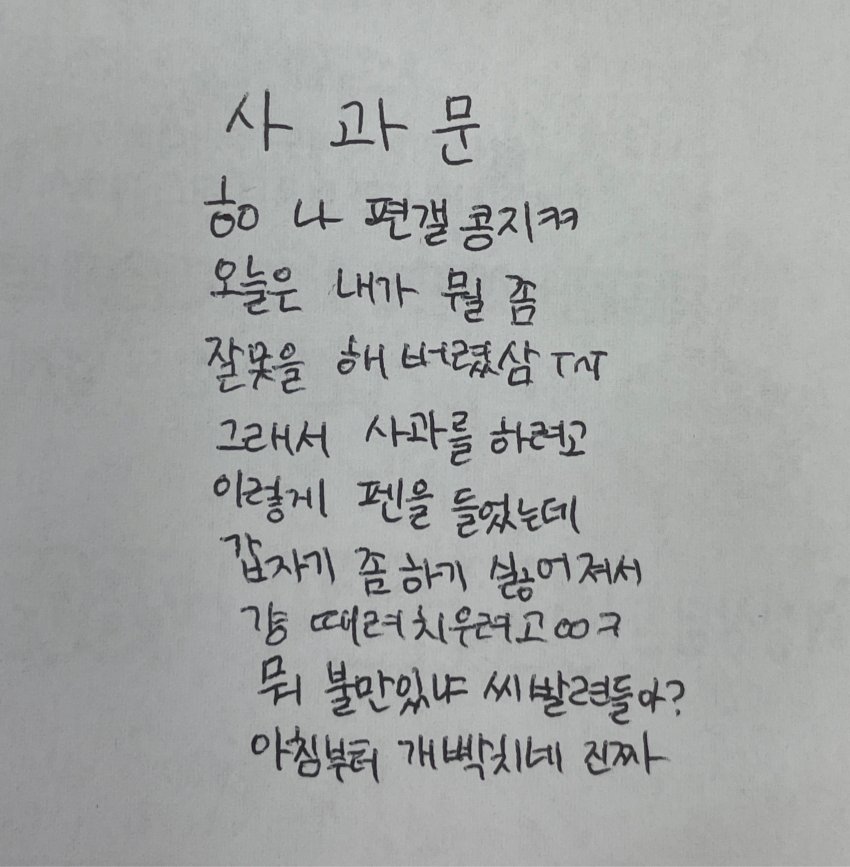 사과문
ㅎㅇ 나 편갤콩지ㅋㅋ
오늘은 내가 뭘 좀
잘못을 해 버렸삼 ㅜㅅㅜ
그래서 사과를 하려고
이렇게 펜을 들었는데
갑자기 좀 하기 싫어져서
걍 때려치우려고 ㅇㅇㅋ
뭐 불만있냐 씨발련들아?
아침부터 개빡치네 진짜